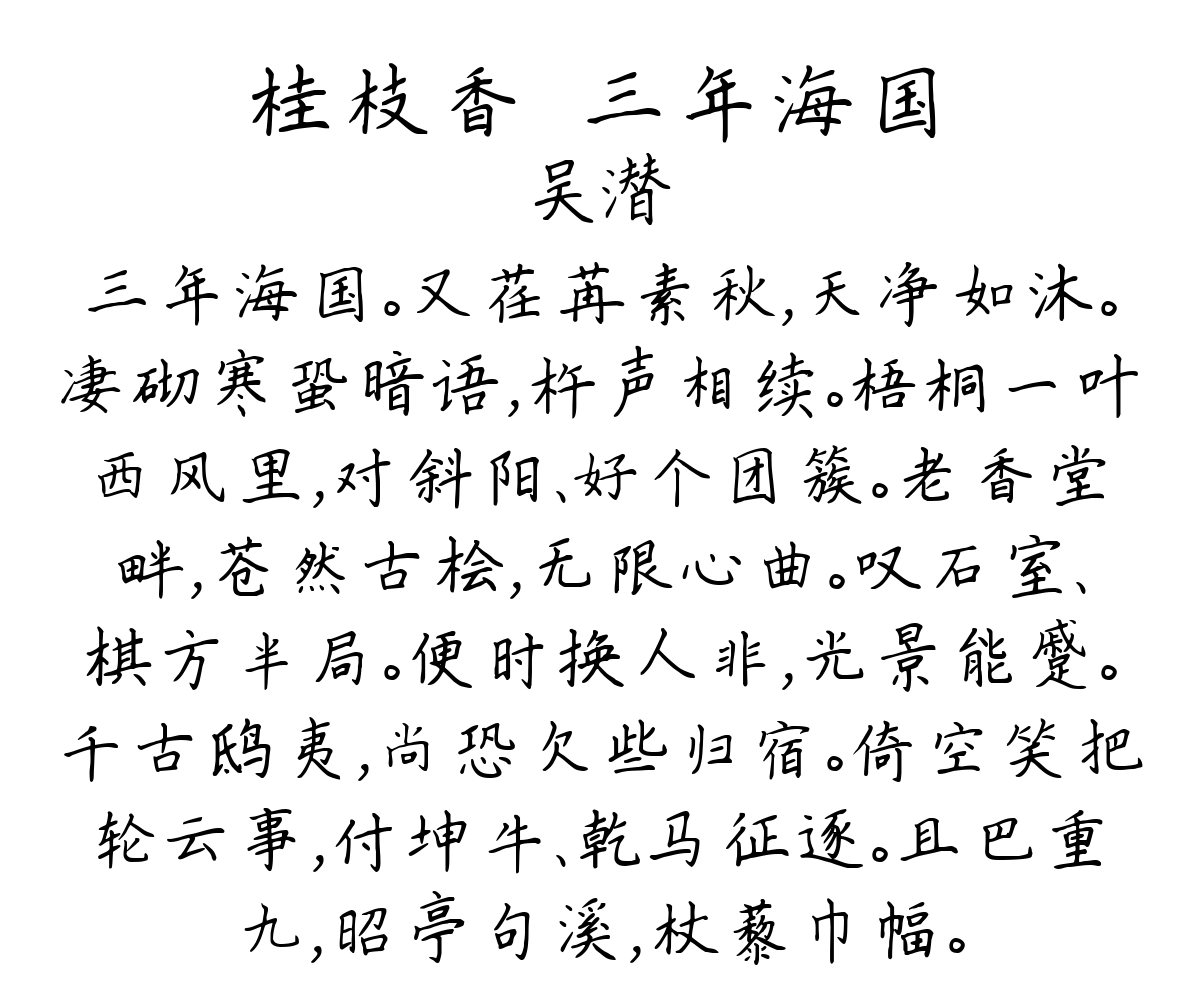 桂枝香 三年海国
吴潜
三年海国。又荏苒素秋,天净如沐。
凄砌寒蛩暗语,杵声相续。梧桐一叶
西风里,对斜阳、好个团簇。老香堂
畔,苍然古桧,无限心曲。叹石室、
棋方半局。便时换人非,光景能蹙。
千古鸱夷,尚恐欠些归宿。倚空笑把
轮云事,付坤牛、乾马征逐。且巴重
九,昭亭句溪,杖藜巾幅。